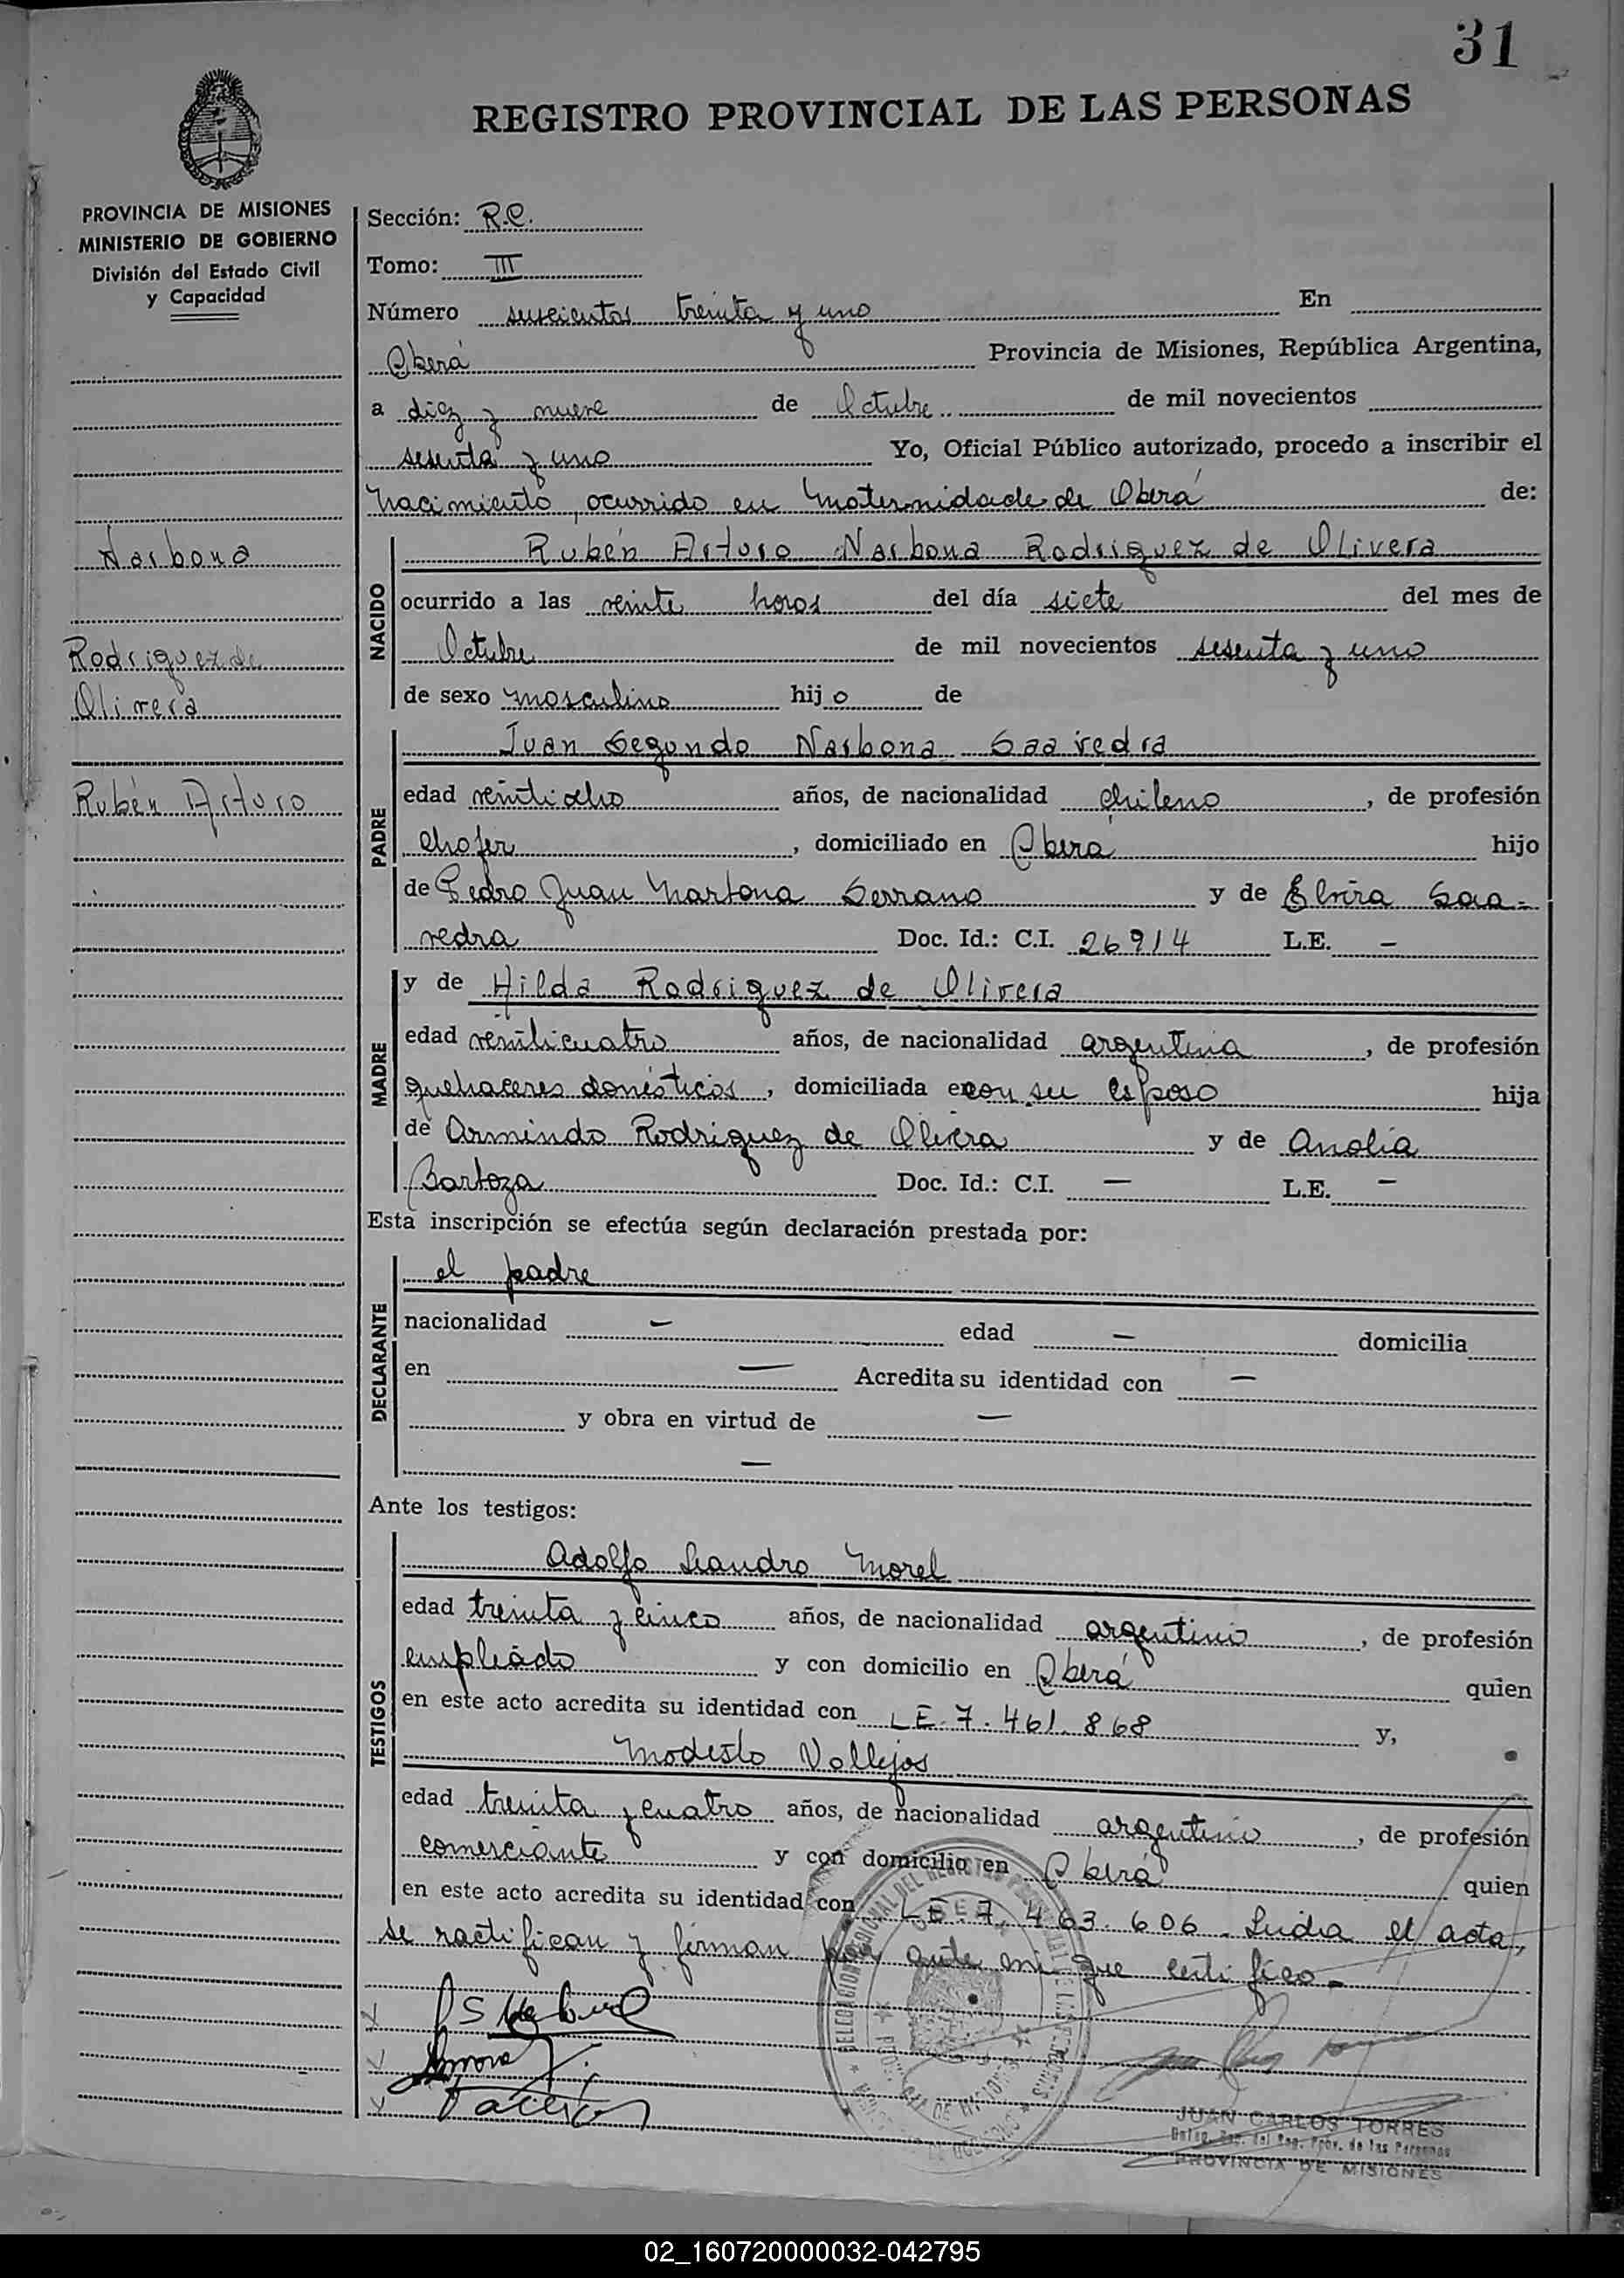 31
REGISTRO PROVINCIAL DE LAS PERSONAS
PROVINCIA DE MISIONES
MINISTERIO DE GOBIERNO
División del Estado Civil
y Capacidad
Narbona
Rodriguez de
Olivera
Rubén Arturo
Sección: R.C.
Tomo: III
Número seiscientos treinta y uno En
Oberá Provincia de Misiones, República Argentina,
a diez y nueve de Octubre de mil novecientos
sesenta y uno Yo, Oficial Público autorizado, procedo a inscribir el
Nacimiento, ocurrido en Maternidade de Oberá de:
NACIDO
Rubén Arturo Narbona Rodriguez de Olivera
ocurrido a las veinte horas del día siete del mes de
Octubre de mil novecientos sesenta y uno
de sexo masculino hijo de
PADRE
Juan Segundo Narbona Saavedra
edad veintiocho años, de nacionalidad chileno, de profesión
chofer, domiciliado en Oberá hijo
de Pedro Juan Narbona Serrano y de Elvira Saa-
vedra Doc. Id.: C.I. 26914 L.E. -
MADRE
y de Hilda Rodriguez de Olivera
edad veinticuatro años, de nacionalidad argentina, de profesión
quehaceres domésticos, domiciliada en con su esposo hija
de Armindo Rodriguez de Olivera y de Anolia
Bartoza Doc. Id.: C.I. — L.E. -
Esta inscripción se efectúa según declaración prestada por:
DECLARANTE
el padre
nacionalidad — edad — domicilia
en — Acredita su identidad con —
y obra en virtud de —
—
Ante los testigos:
TESTIGOS
Adolfo Leandro Morel
edad treinta y cinco años, de nacionalidad argentino, de profesión
empleado y con domicilio en Oberá quien
en este acto acredita su identidad con LE. 7.461.868 y,
Modesto Vallejos
edad treinta y cuatro años, de nacionalidad argentino, de profesión
comerciante y con domicilio en Oberá quien
en este acto acredita su identidad con LE. 7.463.606. Leida el acta,
se ractifican y firman por ante mi que certifico.-
JUAN CARLOS TORRES
Deleg. Reg. del Reg. Prov. de las Personas
PROVINCIA DE MISIONES
02_160720000032-042795